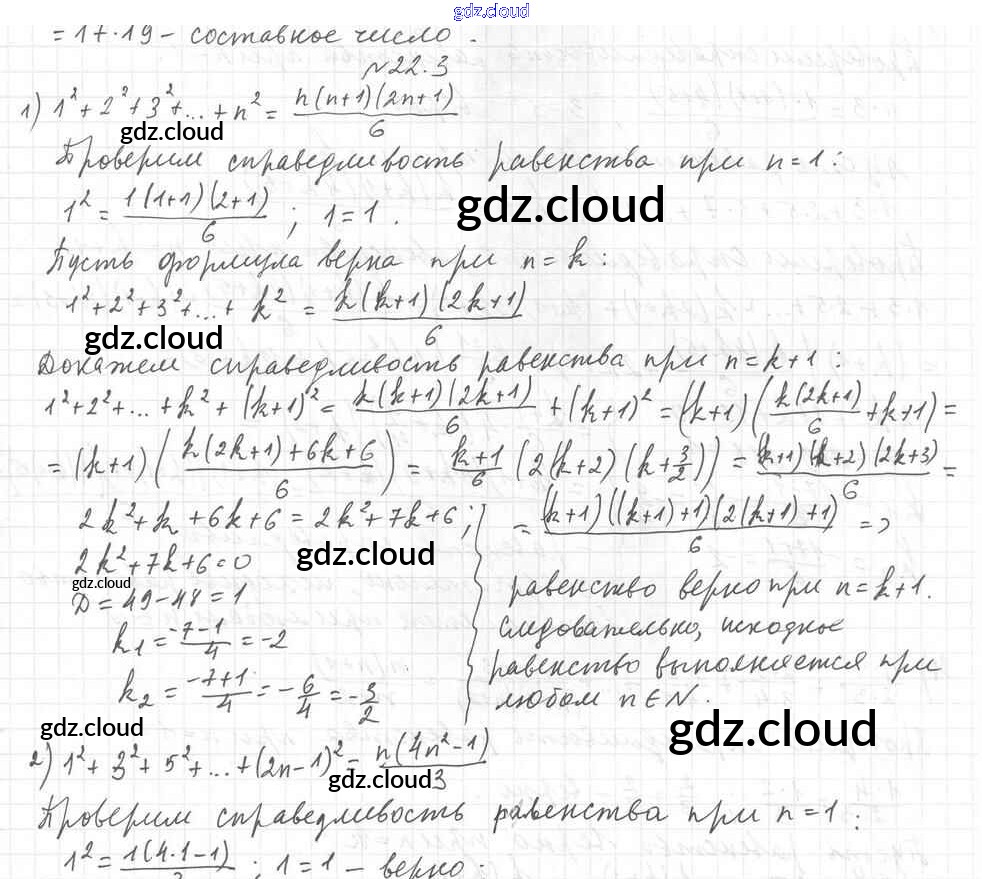 gdz.cloud
= 17·19 – составное число.
№22.3
1) 1² + 2² + 3² + ... + n² = n(n+1)(2n+1)/6
gdz.cloud
Проверим справедливость равенства при n=1:
1² = 1(1+1)(2+1)/6 ; 1=1.
gdz.cloud
Пусть формула верна при n=k:
1²+2²+3²+...+ k² = k(k+1)(2k+1)/6
gdz.cloud
Докажем справедливость равенства при n=k+1:
1²+2²+...+k²+(k+1)² = k(k+1)(2k+1)/6 + (k+1)² = (k+1)(k(2k+1)/6 + k+1) =
= (k+1)(k(2k+1)+6k+6/6) = k+1/6 (2(k+2)(k+3/2)) = (k+1)(k+2)(2k+3)/6 =
2k²+k+6k+6 = 2k²+7k+6;
2k²+7k+6=0
gdz.cloud
gdz.cloud
D = 49-48 = 1
k₁ = -7-1/4 = -2
k₂ = -7+1/4 = -6/4 = -3/2
= (k+1)((k+1)+1)(2(k+1)+1)/6 =>
равенство верно при n=k+1.
Следовательно, исходное
равенство выполняется при
любом n∈N.
gdz.cloud
gdz.cloud
2) 1² + 3² + 5² + ... + (2n-1)² = n(4n²-1)/3
gdz.cloud
Проверим справедливость равенства при n=1:
1² = 1(4·1-1)/3 ; 1=1 – верно;